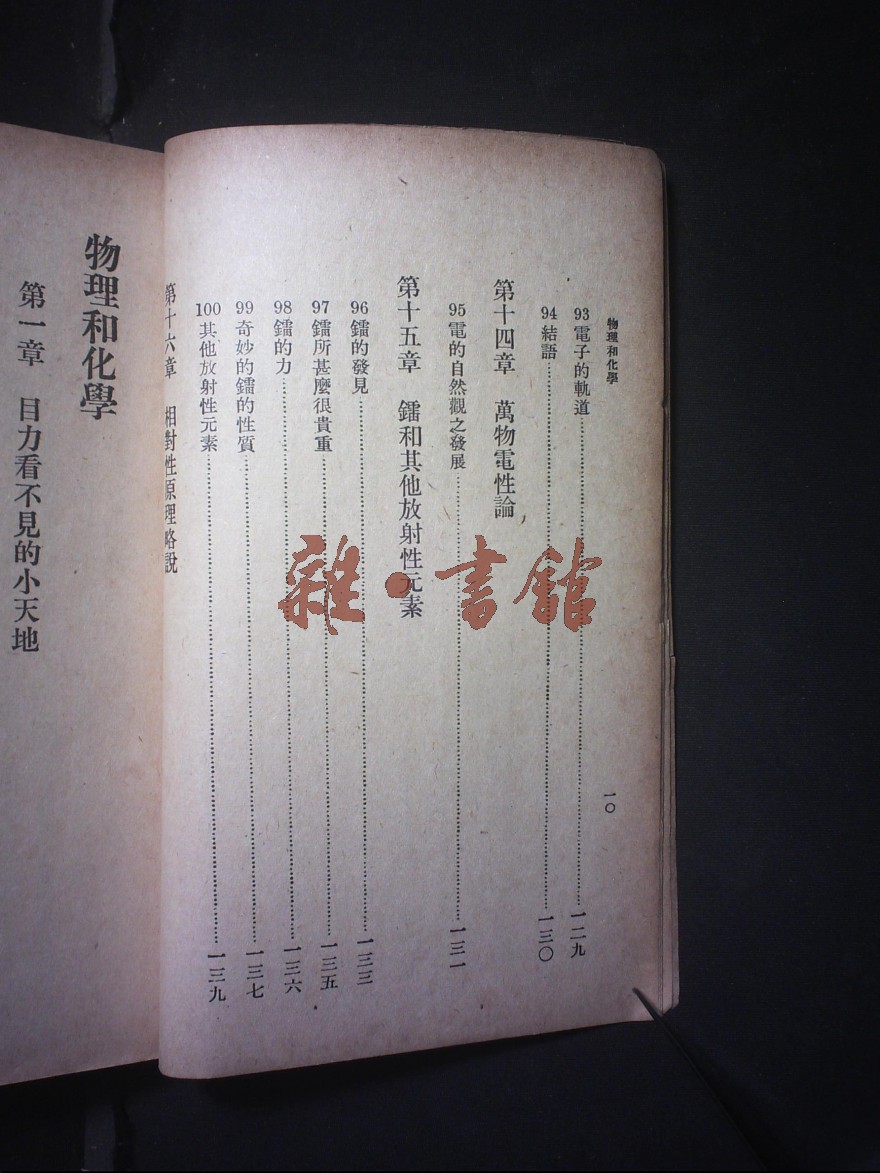 物理和化學
一〇
93 電子的軌道……一二九
94 結語……一三〇
第十四章 萬物電性論
95 電的自然觀之發展……一三一
第十五章 鐳和其他放射性元素
96 鐳的發見……一三三
97 鐳所甚麼很貴重……一三五
98 鐳的力……一三六
99 奇妙的鐳的性質……一三七
100 其他放射性元素……一三九
第十六章 相對性原理略說
物理和化學
第一章 目力看不見的小天地
雜·書館